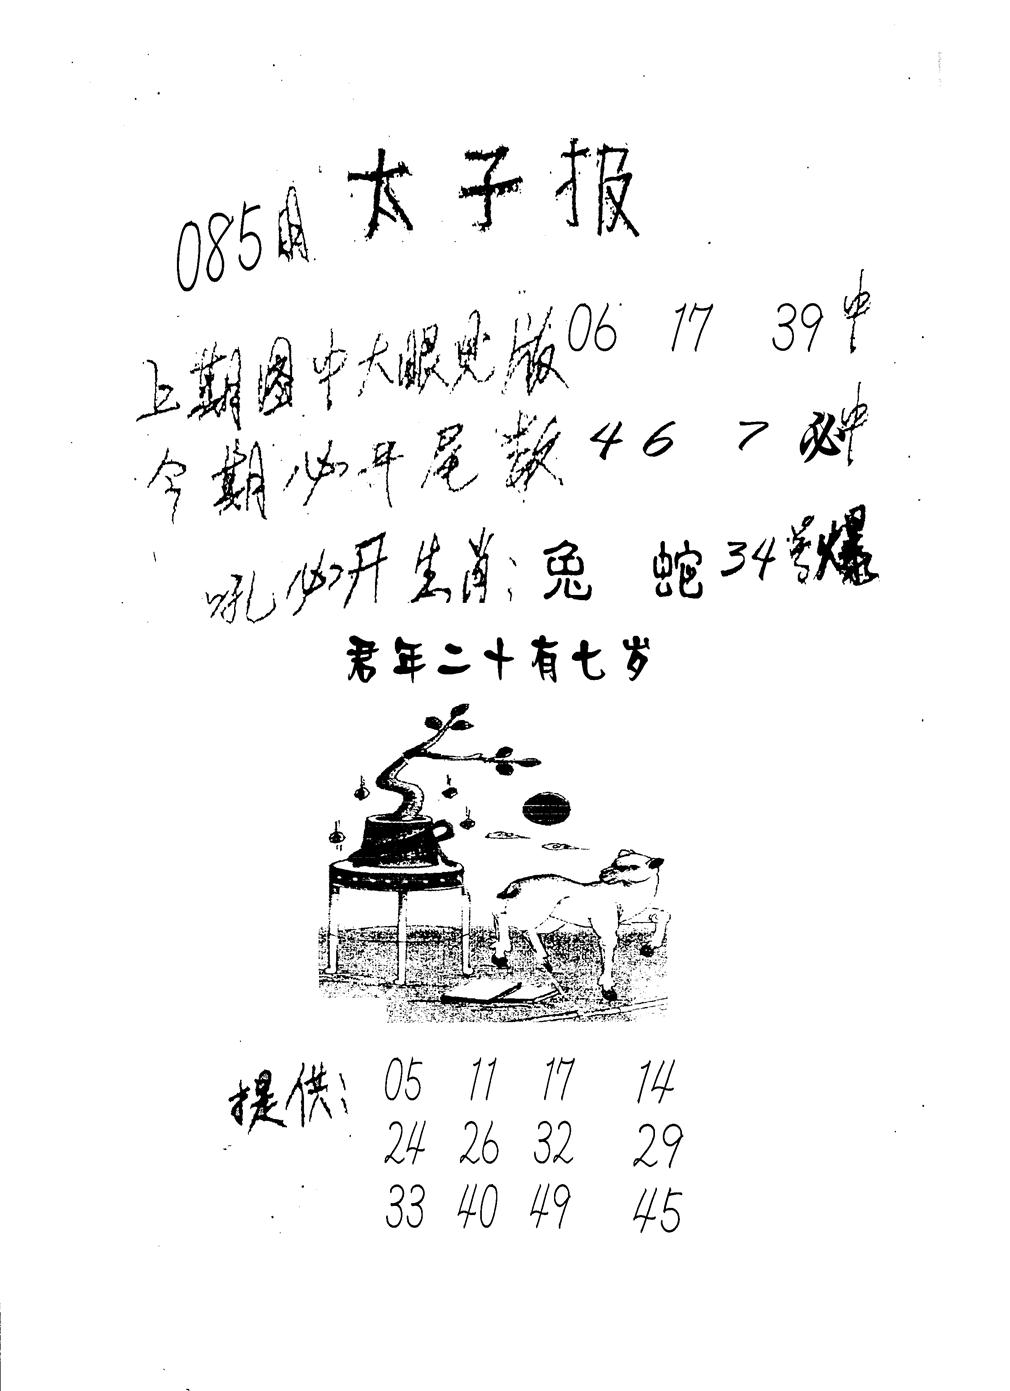 太子报
085期
上期图中大眼见版06 17 39中
今期必开尾数4 6 7必中
吼必开生肖:兔 蛇34号爆
君年二十有七岁
提供: 05 11 17 14
24 26 32 29
33 40 49 45